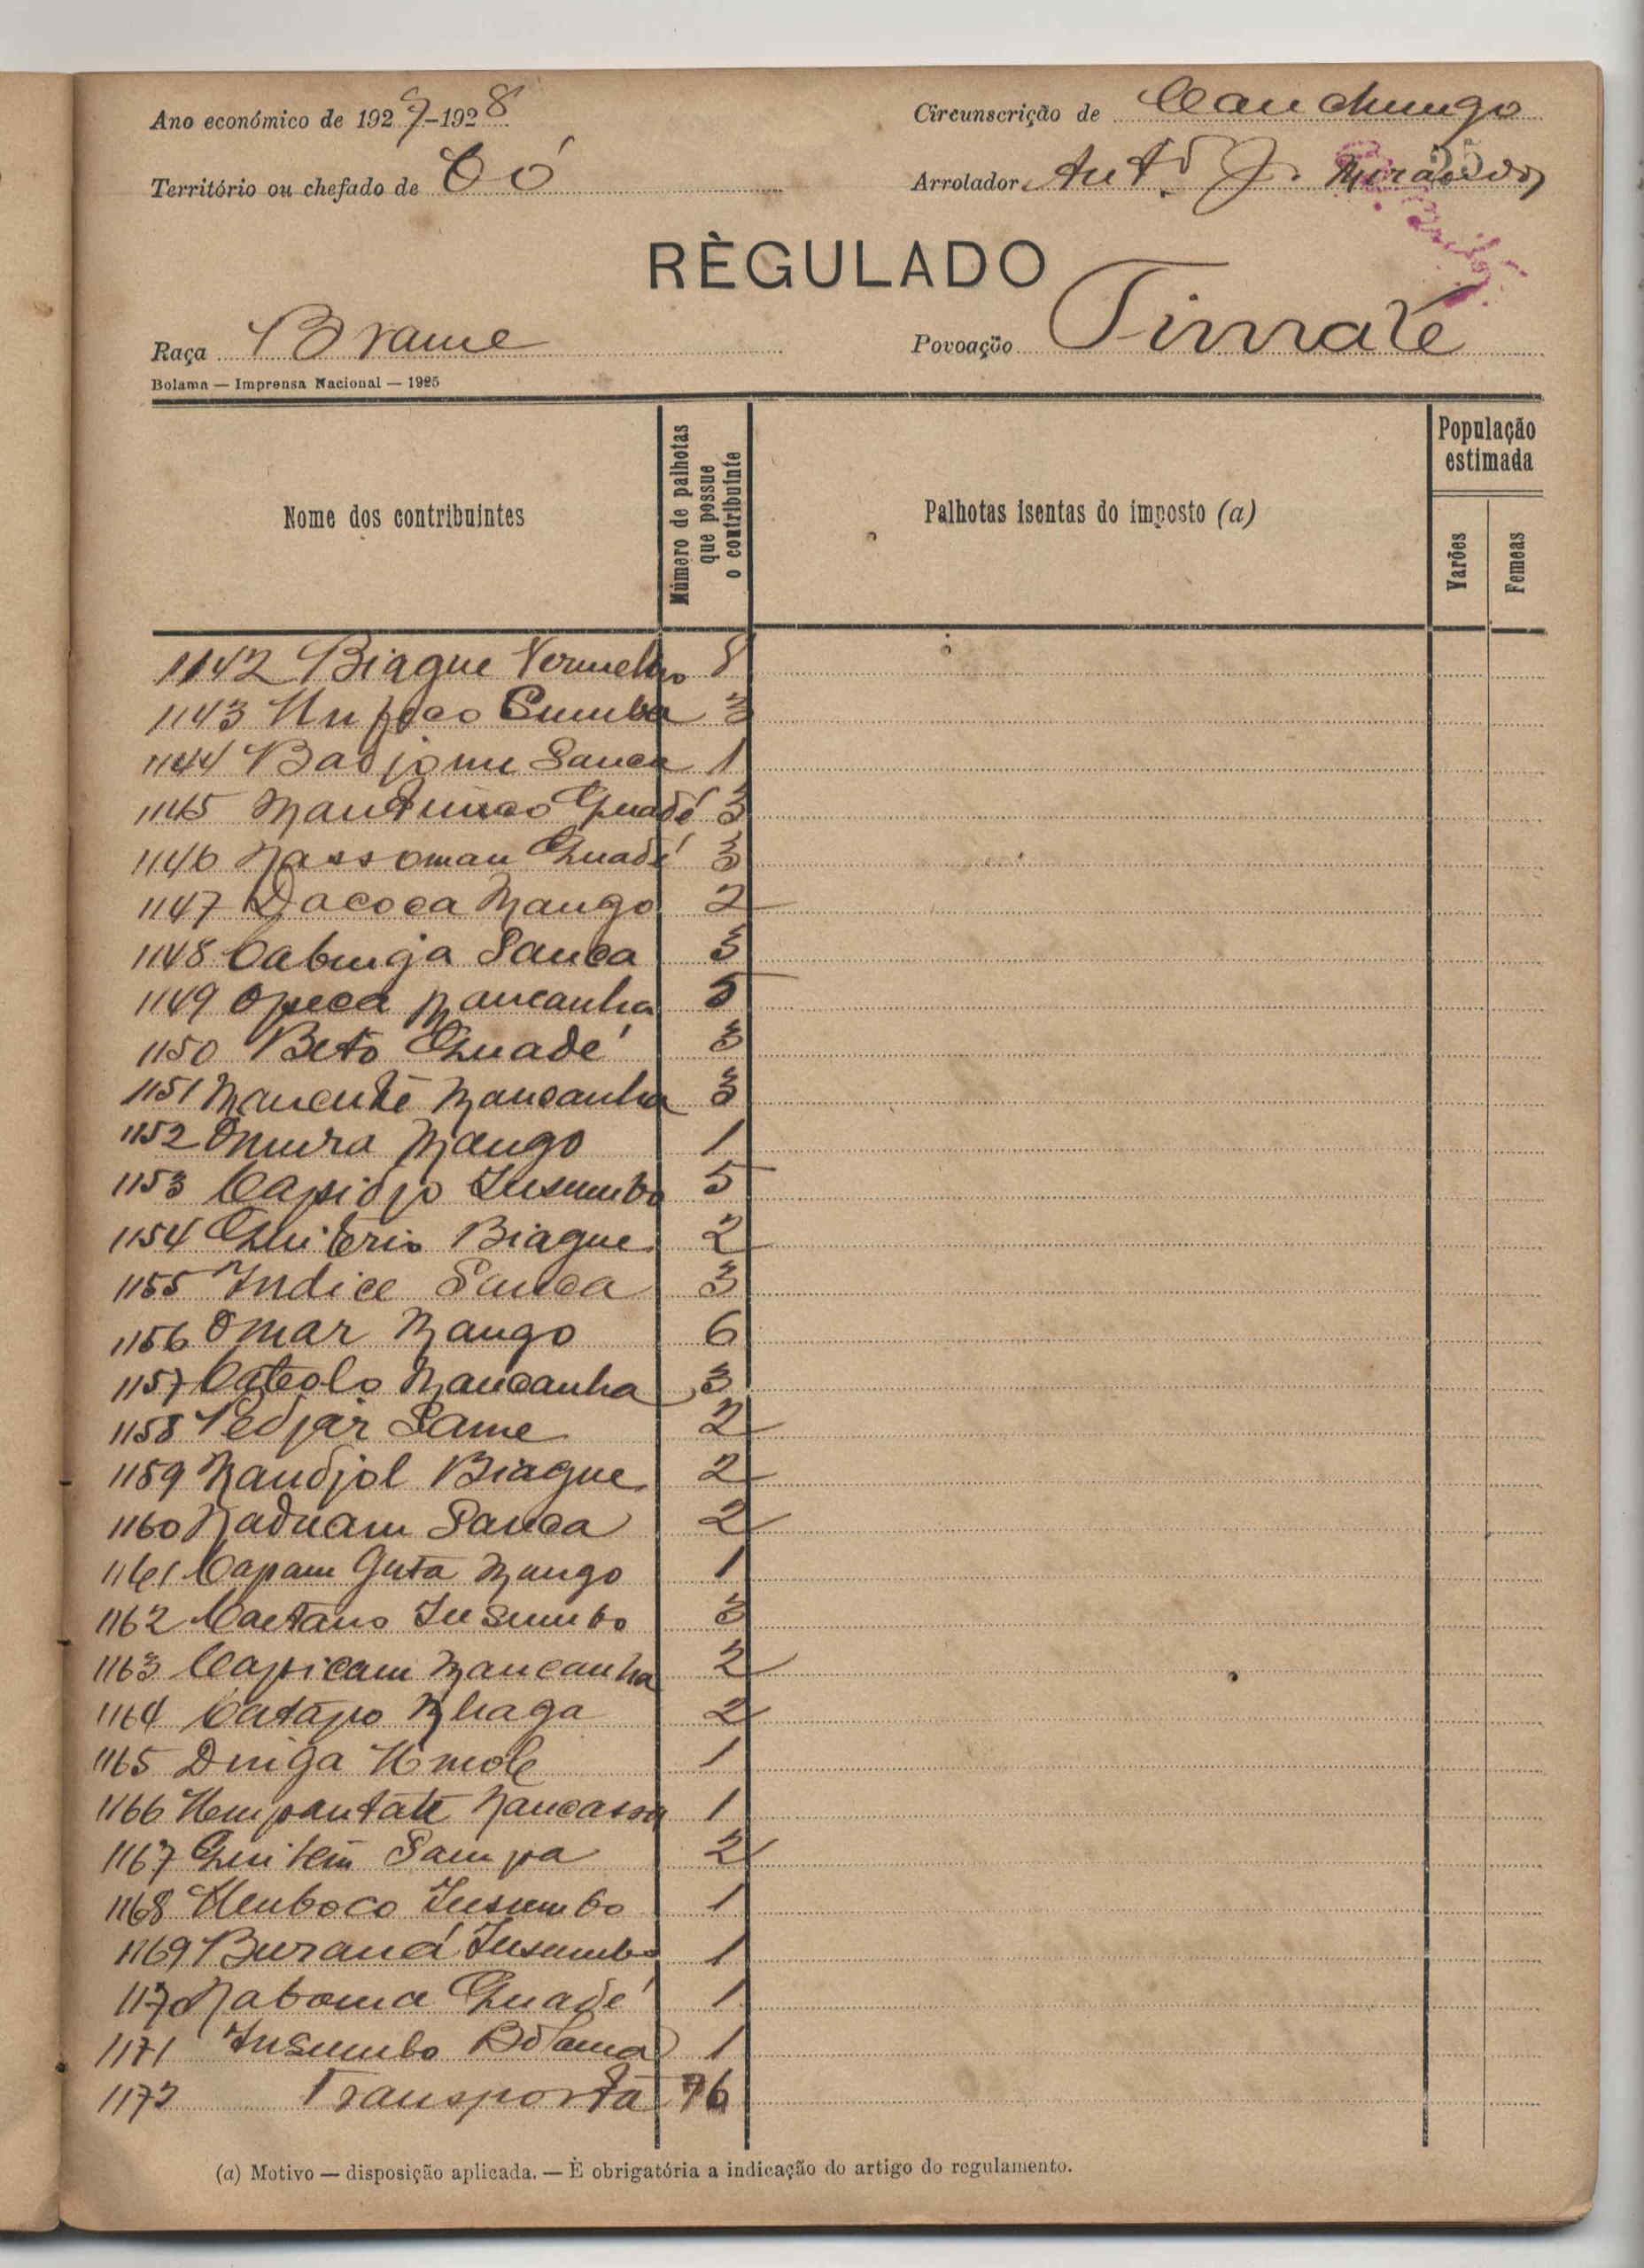 Ano económico de 1927-1928
Circunscrição de Canchungo
Território ou chefado de Có
Arrolador Antº J.
25
RÈGULADO
Raça Brame
Povoação
Bolama — Imprensa Nacional — 1925
Nome dos contribuintes
Número de palhotas que possue o contribuinte
Palhotas isentas do imposto (a)
População estimada
Varões
Femeas
1142 Biague Vermelho
1143 3
1144 Sanca 1
1145 Quadé 3
1146 Nassoman Quadé 3
1147 Dacoca Mango 2
1148 Cabunja Sanca 3
1149 Opeca Mancanha 5
1150 Beto Quadé 3
1151 Mancanha 3
1152 Mango 1
1153 Insumbo 5
1154 Quiterio Biague 2
1155 Indice Sanca 3
1156 Omar Mango 6
1157 Mancanha 3
1158 Pedjar Same 2
1159 Mandjol Biague 2
1160 Naduam Sanca 2
1161 Capam Guta Mango 1
1162 Caetano Insumbo 3
1163 Capicam Mancanha 2
1164 Catapo 2
1165 1
1166 1
1167 Sampa 2
1168 Insumbo 1
1169 Buraná Insumbo 1
1170 Quadé 1
1171 Insumbo Bolama 1
1172 Transporta 76
(a) Motivo — disposição aplicada. — È obrigatória a indicação do artigo do regulamento.